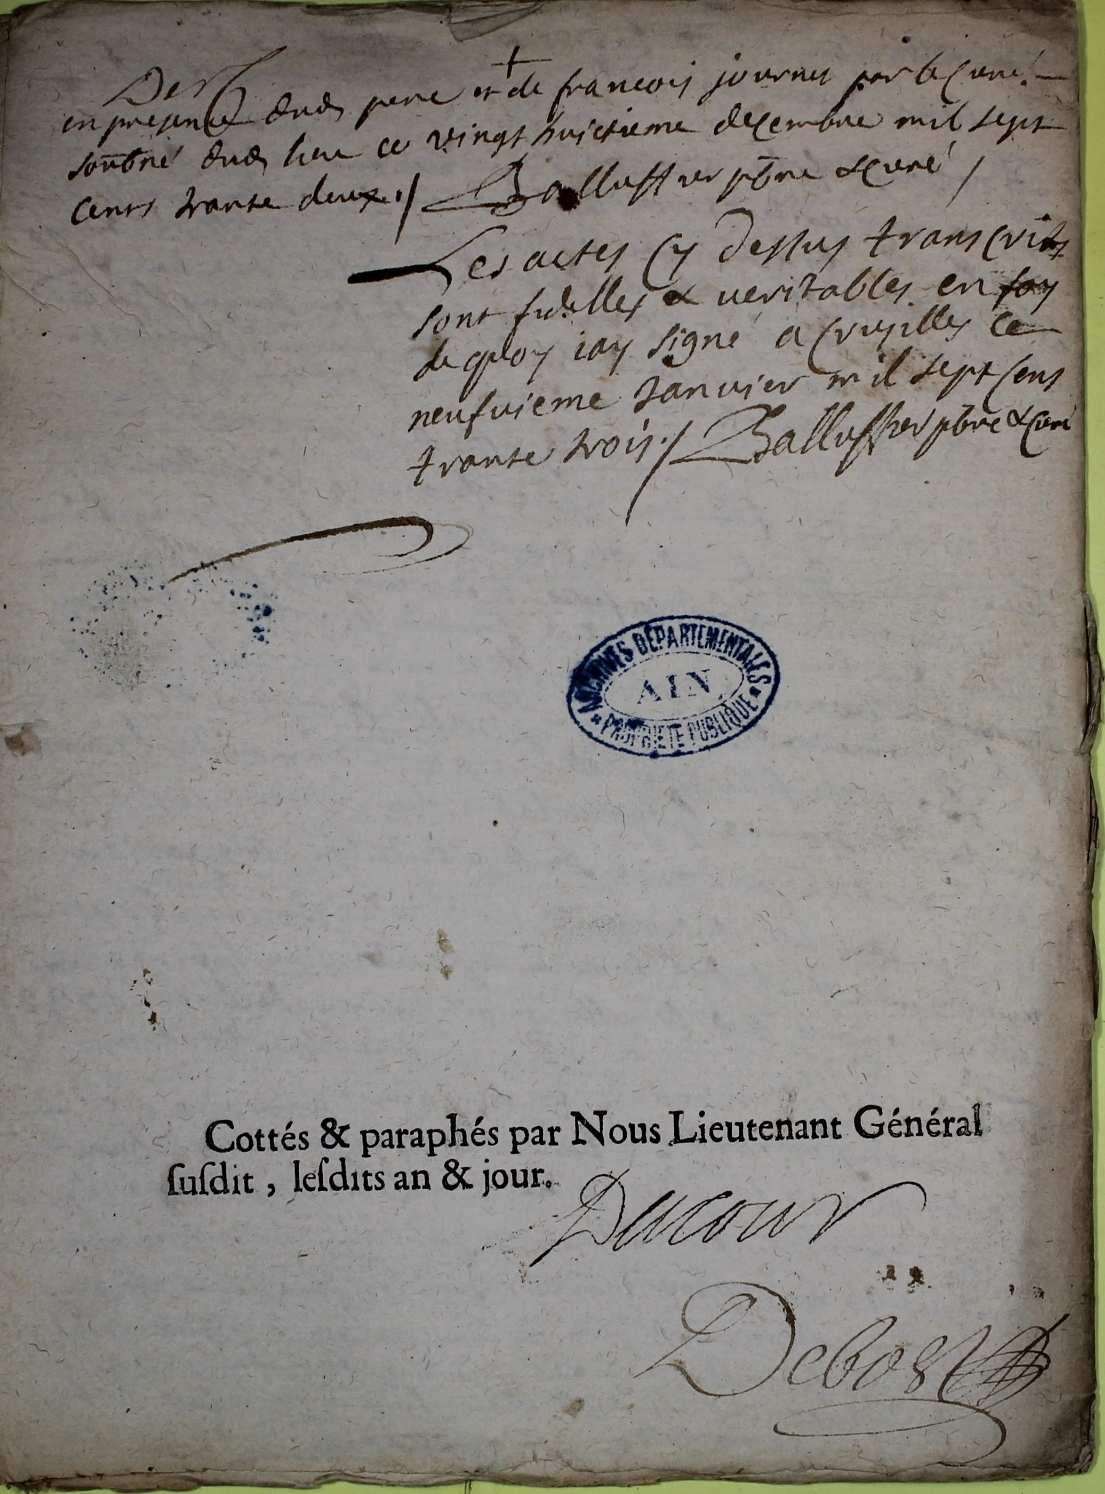 en presence dud pere et de francois journet par le curé
soubné dud lieu ce vingt huictieme decembre mil sept
cents trante deux ./ Balluffier pbre & curé /
Les actes cy dessus transcrits
sont fidelles & veritables en foy
de quoy iay signé a crusilles ce
neufvieme Janvier mil sept cens
trante trois ./ Balluffier pbre & curé
ARCHIVES DÉPARTEMENTALES
AIN
PROPRIÉTÉ PUBLIQUE
Cottés & paraphés par Nous Lieutenant Général
ſuſdit , leſdits an & jour.
Ducour
Debost